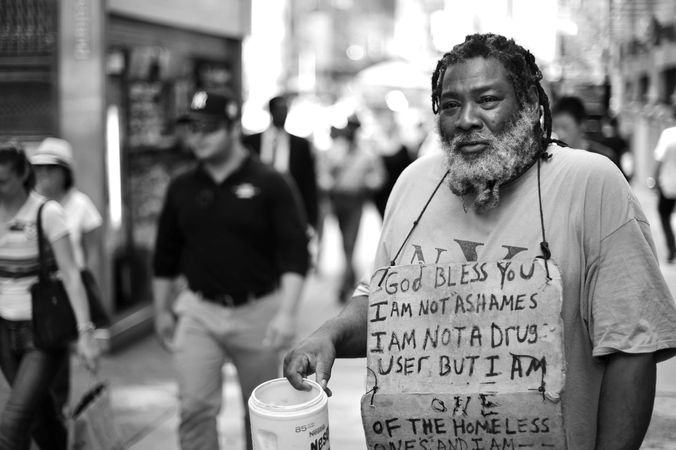 NY
NY
GOD BLESS YOU
I AM NOT ASHAMES
I AM NOT A DRUG
USER BUT I AM
ONE
OF THE HOMELESS
ONES AND I AM--
85
NESTLE
Nes